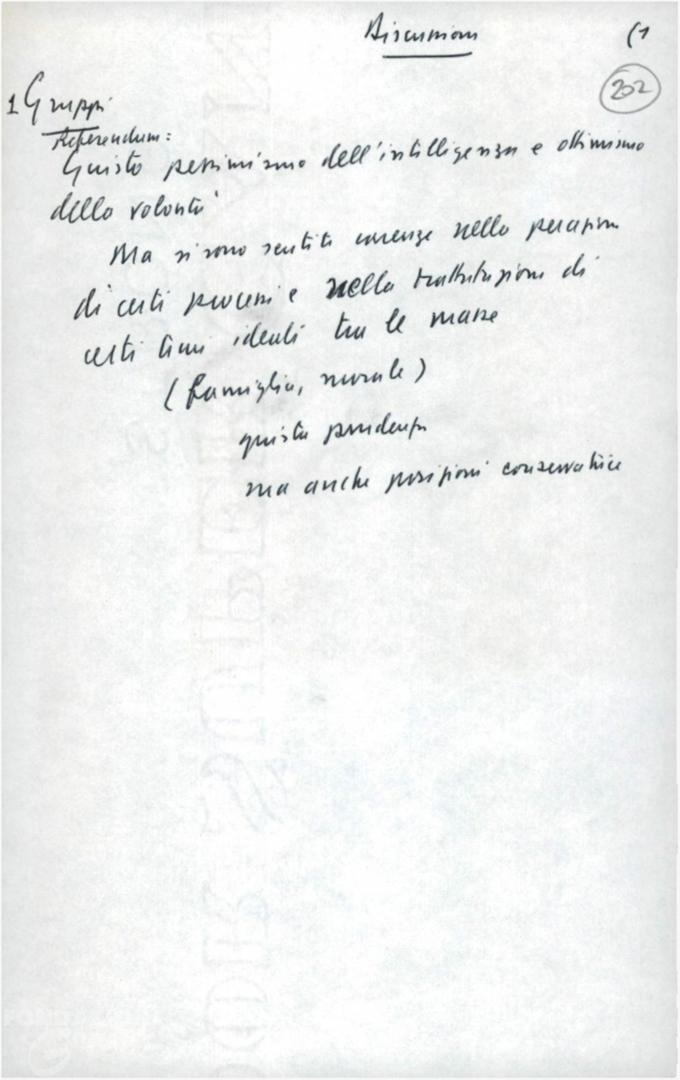 Discussioni (1
202
1 Gruppi
Referendum:
Giusto pessimismo dell'intelligenza e ottimismo
della volontà
Ma si sono sentite carenze nella
di certi processi e nella di
certi temi ideali tra le masse
(famiglia, morale)
giusta prudenza
ma anche posizioni conservatrici